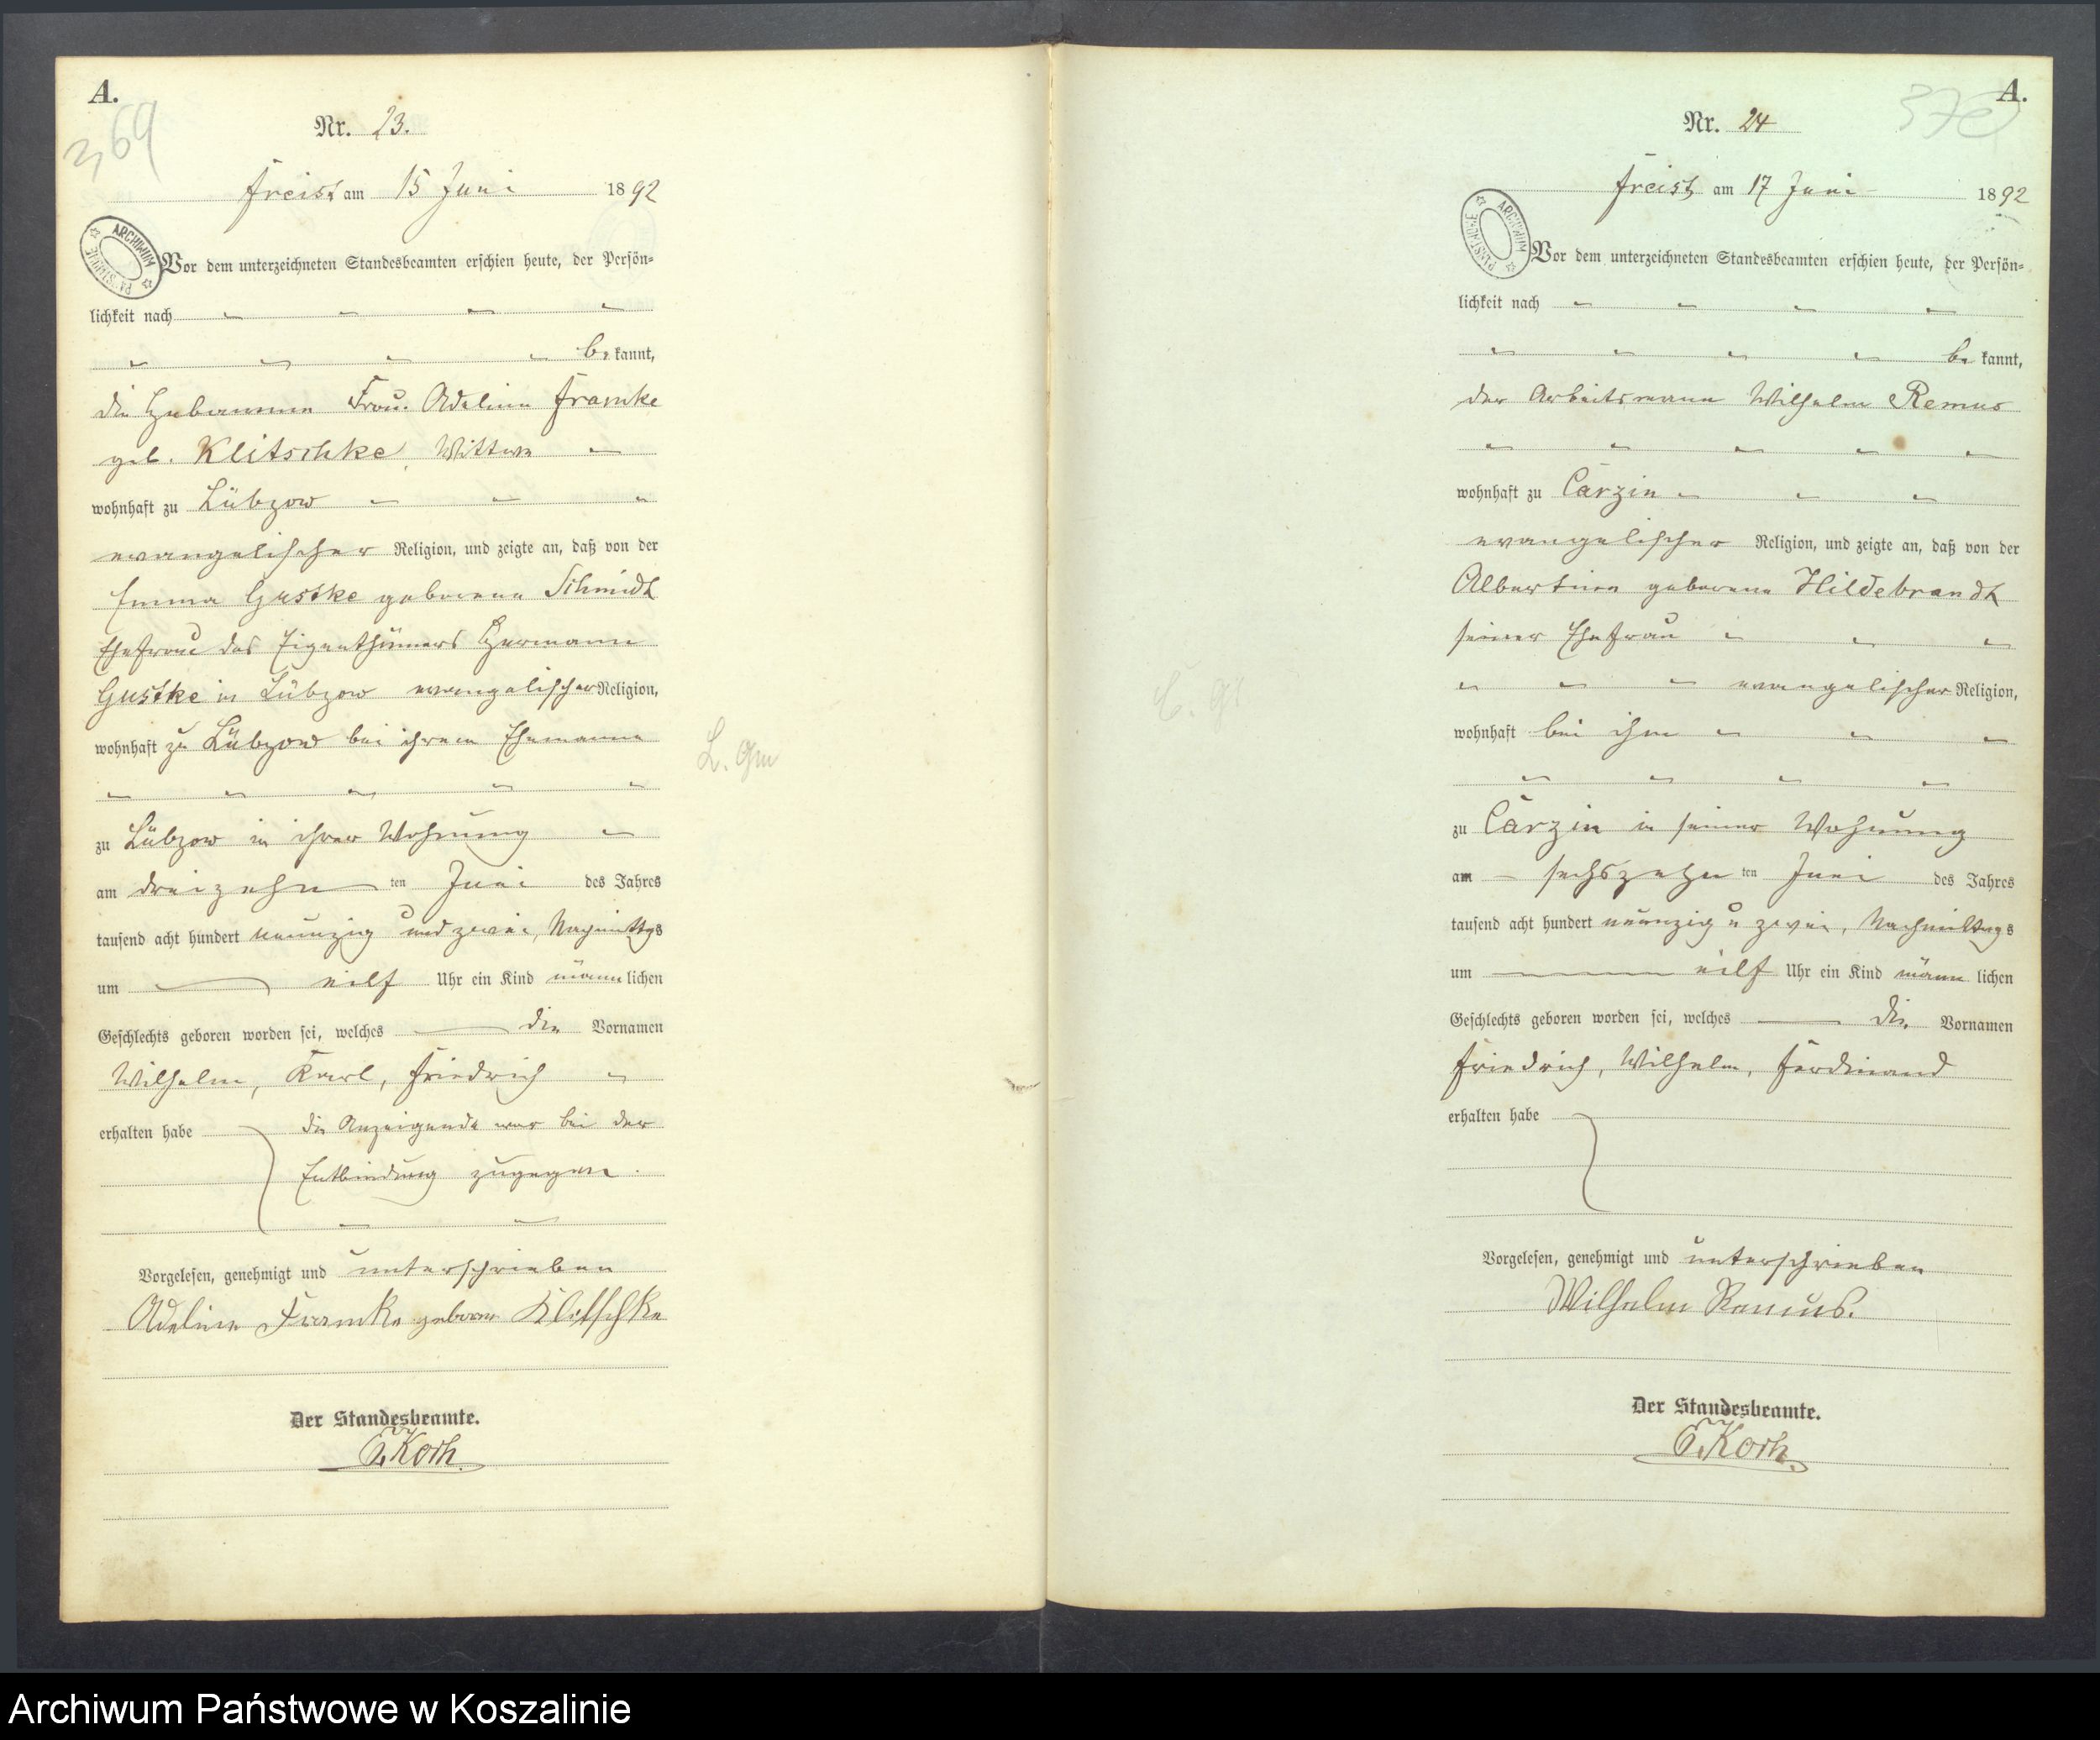 A.
369
Nr. 23.
Freist am 15 Juni 1892
ARCHIWUM PAŃSTWOWE
Vor dem unterzeichneten Standesbeamten erschien heute, der Persön-
lichkeit nach
be kannt,
die Hebamme Frau Adeline Framke
geb. Klitschke, Wittwe
wohnhaft zu Lübzow
evangelischer Religion, und zeigte an, daß von der
Emma Gustke geborene Schmidt
Ehefrau des Eigenthümers Hermann
Gustke in Lübzow evangelischer Religion,
wohnhaft zu Lübzow bei ihrem Ehemanne
zu Lübzow in ihrer Wohnung
am dreizehn ten Juni des Jahres
tausend acht hundert neunzig und zwei, Nachmittags
um eilf Uhr ein Kind männ lichen
Geschlechts geboren worden sei, welches die Vornamen
Wilhelm, Karl, Friedrich
erhalten habe die Anzeigende war bei der
Entbindung zugegen.
Vorgelesen, genehmigt und unterschrieben
Adeline Framke geboren Klitschke
Der Standesbeamte.
Koch
L. Gm
A.
Nr. 24
Freist am 17 Juni 1892
ARCHIWUM PAŃSTWOWE
Vor dem unterzeichneten Standesbeamten erschien heute, der Persön-
lichkeit nach
be kannt,
der Arbeitsmann Wilhelm Remus
wohnhaft zu Carzin
evangelischer Religion, und zeigte an, daß von der
Albertine geborene Hildebrandt
seiner Ehefrau
evangelischer Religion,
wohnhaft bei ihm
zu Carzin in seiner Wohnung
am sechszehn ten Juni des Jahres
tausend acht hundert neunzig u zwei, Nachmittags
um eilf Uhr ein Kind männ lichen
Geschlechts geboren worden sei, welches die Vornamen
Friedrich, Wilhelm, Ferdinand
erhalten habe
Vorgelesen, genehmigt und unterschrieben
Wilhelm Remus.
Der Standesbeamte.
Koch
Archiwum Państwowe w Koszalinie